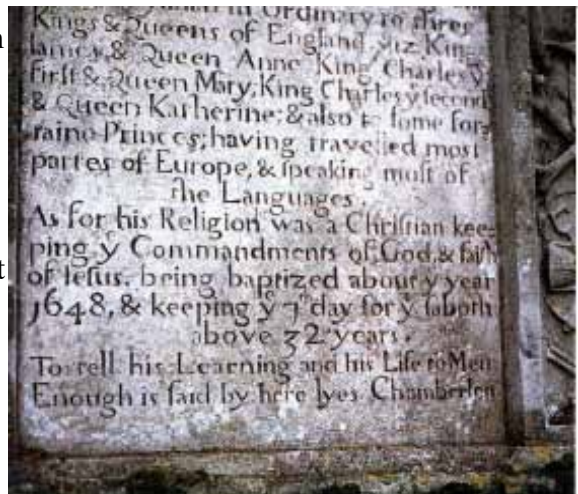 in Ordinary to three
Kings & Queens of England viz King
Iames, & Queen Anne King Charles yͤ
firſt & Queen Mary, King Charles yͤ ſecond
& Queen Katherine: & alſo to ſome for=
raine Princes; having travelled moſt
partes of Europe, & ſpeaking moſt of
the Languages.
As for his Religion was a Chriſtian kee=
ping yͤ Commandments of God, & faith
of Ieſus, being baptized about yͤ year
1648, & keeping yͤ 7ᵗʰ day for yͤ ſaboth
above 32 years.
To tell his Learning and his Life to Men
Enough is ſaid by here lyes Chamberlen